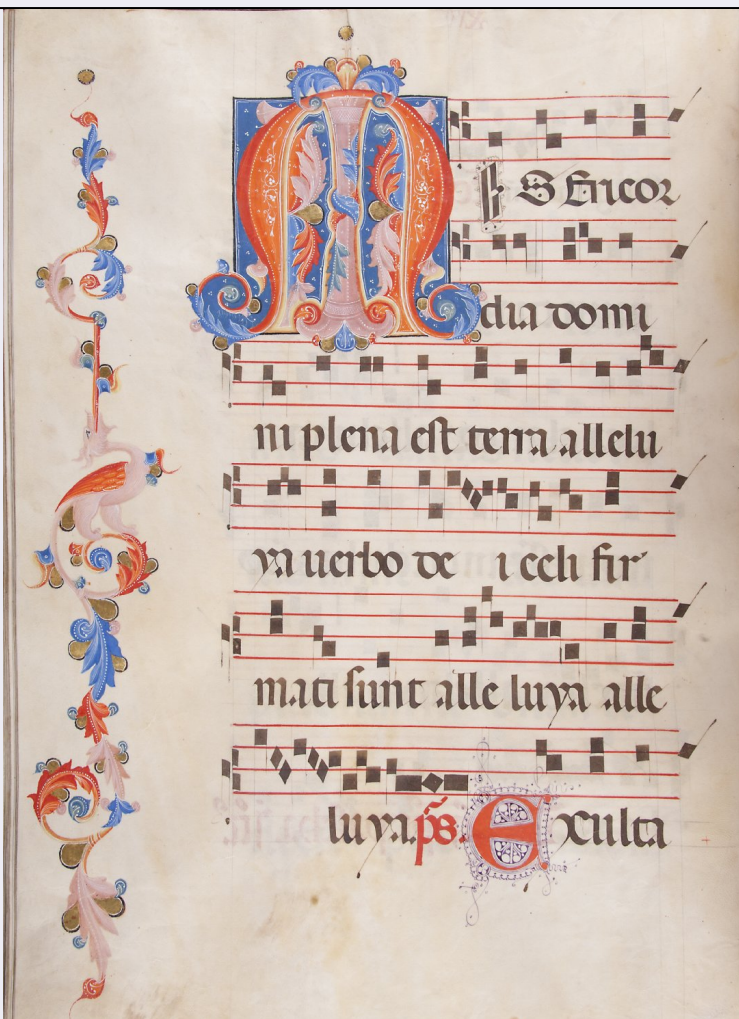 MISericor
dia domi
ni plena est terra allelu
ya uerbo de i celi fir
mati sunt alle luya alle
luya. ps Exulta